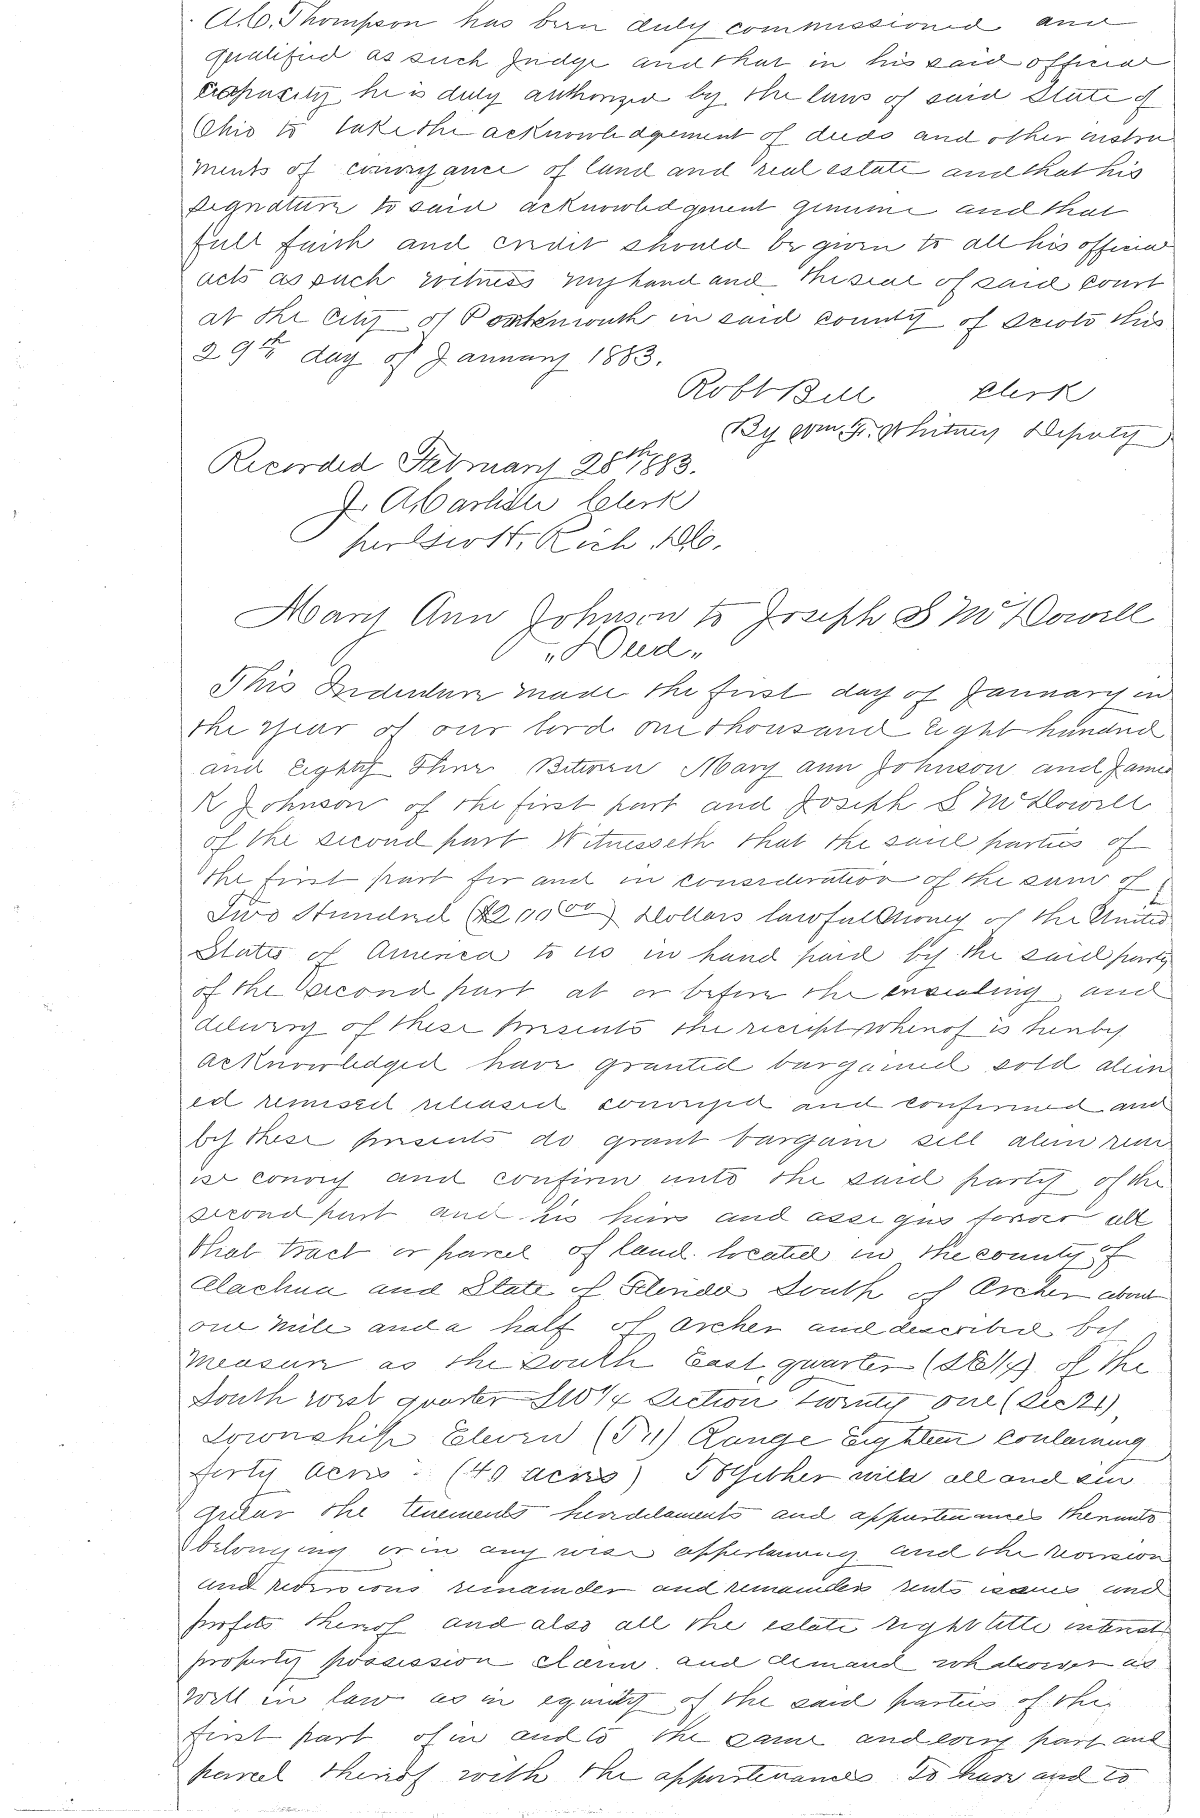 A.C. Thompson has been duly commissioned and
qualified as such Judge and that in his said official
capacity he is duly authorized by the laws of said State of
Ohio to take the acknowledgement of deeds and other instru
ments of conveyance of land and real estate and that his
signature to said acknowledgment genuine and that
full faith and credit should be given to all his official
acts as such witness my hand and the seal of said court
at the City of Portsmouth in said county of Scioto this
29th day of January 1883.
Robt Bell Clerk
By Wm. F. Whitney Deputy
Recorded February 28th 1883.
J. A. Carlisle Clerk
per Scott. Rich. D.C.
Mary Ann Johnson to Joseph S McDowell
"Deed"
This Indenture made the first day of January in
the year of our lord one thousand Eight hundred
and Eighty Three Between Mary ann Johnson and James
K Johnson of the first part and Joseph S McDowell
of the second part Witnesseth that the said parties of
the first part for and in consideration of the sum of
Two Hundred ($200 00) Dollars lawful Money of the United
States of America to us in hand paid by the said party
of the second part at or before the ensealing and
delivery of these presents the receipt whereof is hereby
acknowledged have granted bargained sold alien
ed remised released conveyed and confirmed and
by these presents do grant bargain sell alien rem
ise convey and confirm unto the said party of the
second part and his heirs and assigns forever all
that tract or parcel of land located in the county of
Alachua and State of Florida South of Archer about
one mile and a half of Archer and described by
Measure as the South East quarter (SE1/4) of the
South west quarter SW1/4 Section twenty one (Sec 21)
Township Eleven (T11) Range Eighteen containing
forty acres. (40 acres) Together with all and sin
gular the tenements hereditaments and appurtenances thereunto
belonging or in any wise appertaining and the reversion
and reversions remainder and remainders rents issues and
profits thereof and also all the estate right title interest
property possession claim and demand whatsoever as
well in law as in equity of the said parties of the
first part of in and to the same and every part and
parcel thereof with the appurtenances To have and to